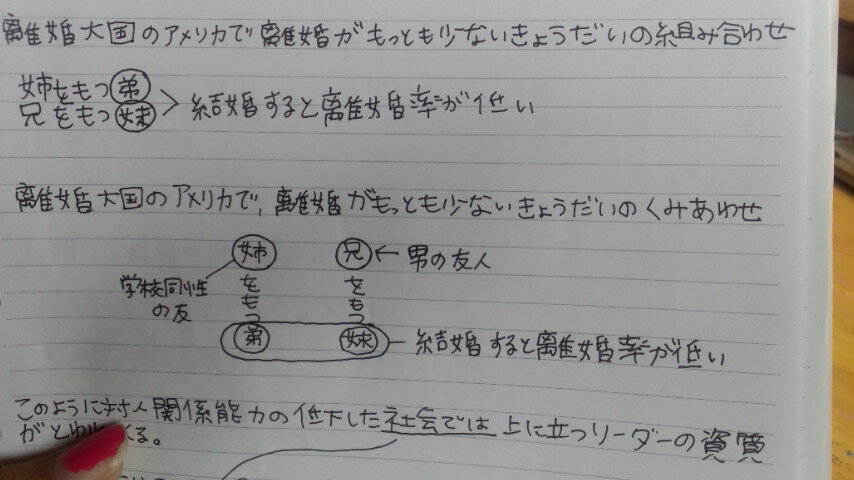 離婚大国のアメリカで離婚がもっとも少ないきょうだいの組み合わせ
姉をもつ弟
兄をもつ妹
> 結婚すると離婚率が低い
離婚大国のアメリカで、離婚がもっとも少ないきょうだいのくみあわせ
姉をもつ弟
兄をもつ妹
←男の友人
学校同性
の友
結婚すると離婚率が低い
このように対人関係能力の低下した社会では上に立つリーダーの資質
がとわ くる。